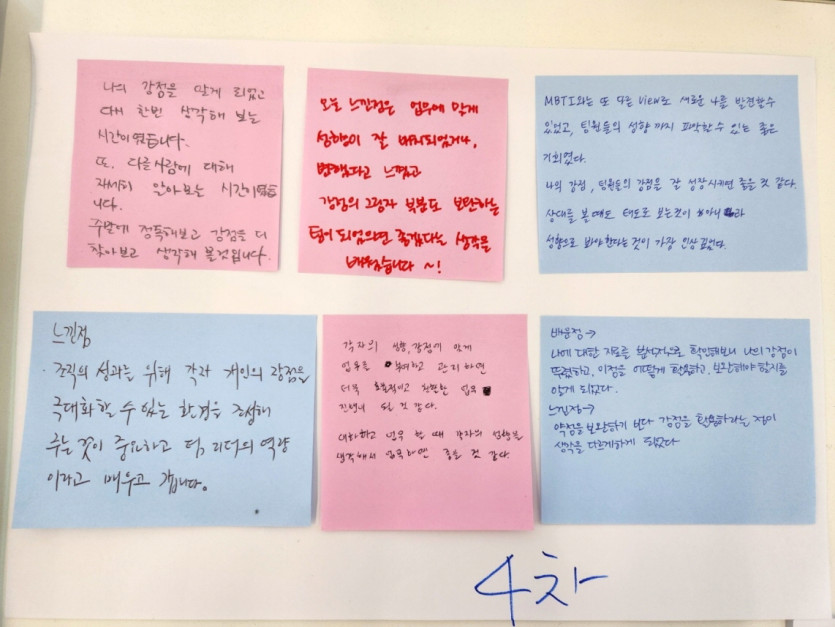 나의 강점을 알게 되었고
다시 한번 생각해 보는
시간이었습니다.
또, 다른사람에 대해
자세히 알아보는 시간이었습
니다.
주말에 정독해보고 강점을 더
찾아보고 생각해 볼것입니다.
오늘 느낀점은 업무에 맞게
성향이 잘 배치되었거나,
변했다고 느꼈고
강점의 그림자 부분도 보완하는
팀이 되었으면 좋겠다는 생각을
배웠습니다 ~!
MBTI와는 또 다른 view로 새로운 나를 발견할수
있었고, 팀원들의 성향 까지 파악할수 있는 좋은
기회였다.
나의 강점, 팀원들의 강점을 잘 성장시키면 좋을 것 같다.
상대를 볼 때도 태도로 보는것이 아니라
성향으로 봐야한다는 것이 가장 인상 깊었다.
느낀점
· 조직의 성과를 위해 각자 개인의 강점을
극대화 할 수 있는 환경을 조성해
주는 것이 중요하고 리더의 역량
이라고 배우고 갑니다.
각자의 성향, 강점에 맞게
업무를 부여하고 관리하면
더욱 효율적이고 업무
진행이 될 것 같다.
대화하고 업무 할 때 각자의 성향을
생각해서 업무하면 좋을 것 같다.
배운점 →
나에 대한 자료를 분석적으로 확인해보니 나의 강점이
뚜렷하고, 이점을 어떻게 활용하고, 보완해야 할지를
알게 되었다.
느낀점 →
약점을 보완하기 보다 강점을 활용하라는 점이
생각을 다르게하게 되었다
4차